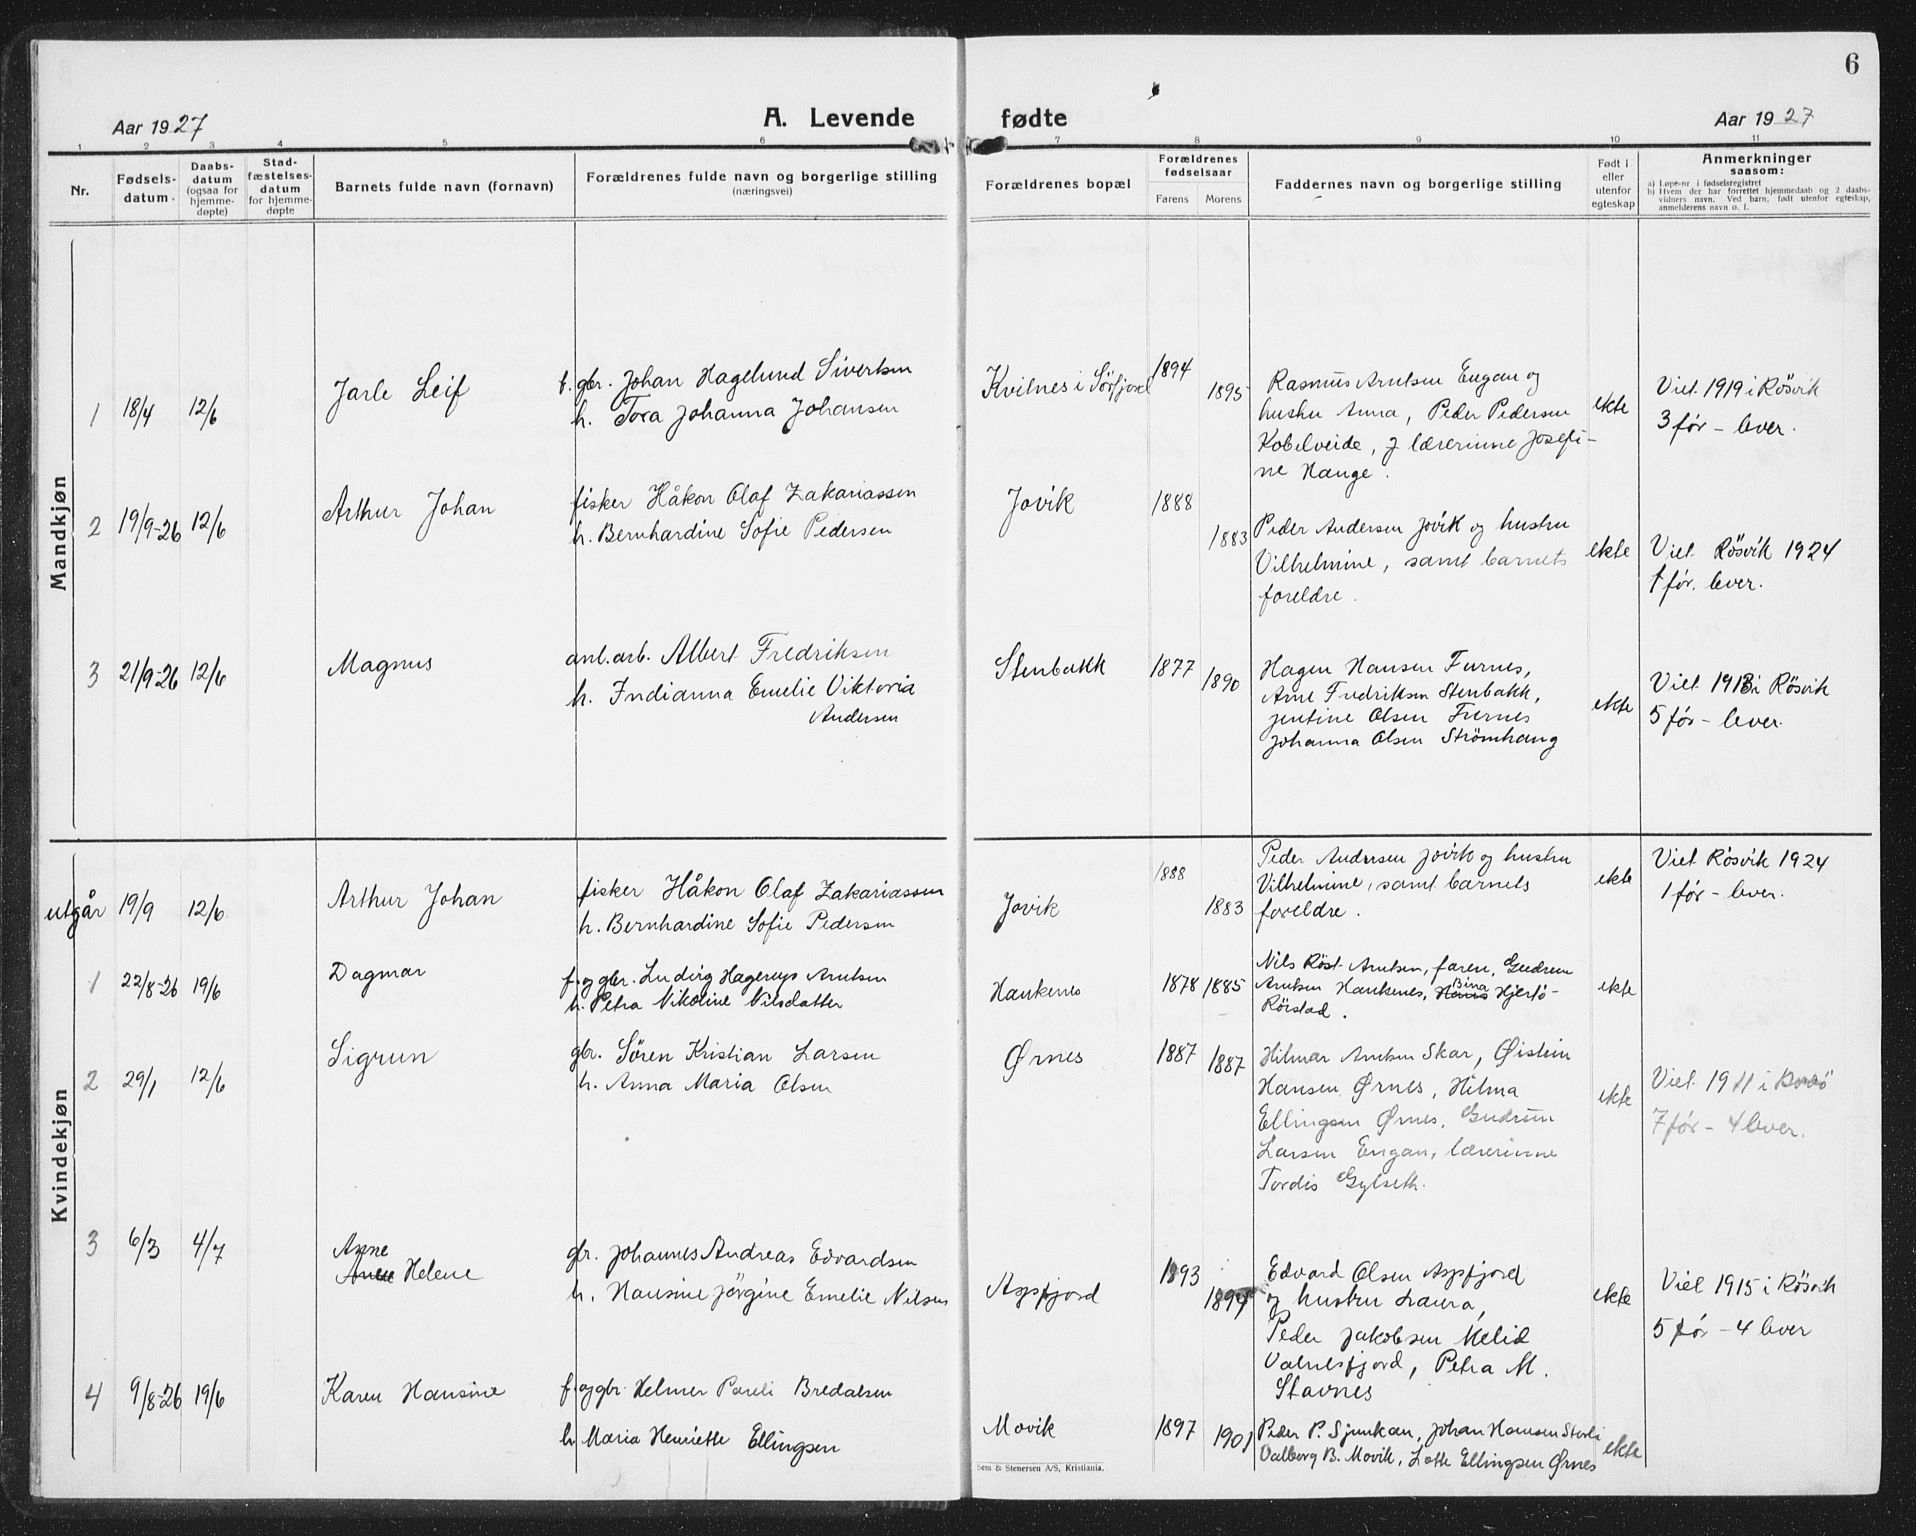 6
Aar 1927
A. Levende
fødte
Aar 1927
1 2 3 4 5 6 7 8 9 10 11
Nr.
Fødsels-
datum.
Daabs-
datum
(ogsaa for
hjemme-
døpte)
Stad-
fæstelses-
datum
for hjemme-
døpte
Barnets fulde navn (fornavn)
Forældrenes fulde navn og borgerlige stilling
(næringsvei)
Forældrenes bopæl
Forældrenes
fødselsaar
Farens Morens
Faddernes navn og borgerlige stilling
Født i
eller
utenfor
egteskap
Anmerkninger
saasom:
a) Løpe-nr. i fødselsregistret
b) Hvem der har forrettet hjemmedaab og 2 daabs-
vidners navn. Ved barn, født utenfor egteskap,
anmelderens navn o. l.
Mandkjøn
1 18/4 12/6 Jarle Leif
f. gbr. Johan Hagelund Sivertsen
h. Tora Johanna Johansen
Kvilnes i Sørfjord 1894 1895
Rasmus Arntsen Engan og
hustru Anna, Peder Pedersen
Kobelveide, lærerinne Josefi-
ne Hauge.
ekte
Viet 1919 i Røsvik
3 før - lever.
2 19/9-26 12/6 Arthur Johan
fisker Håkon Olaf Zakariassen
h. Bernhardine Sofie Pedersen
Jovik 1888 1883
Peder Andersen Jovik og hustru
Vilhelmine, samt barnets
foreldre.
ekte
Viet Røsvik 1924
1 før. lever.
3 21/9-26 12/6 Magnus
anl.arb. Albert Fredriksen
h. Indianna Emelie Viktoria
Andersen
Stenbakk 1877 1890
Hagen Hansen Furnes,
Arne Fredriksen Stenbakk,
Jentine Olsen Furnes
Johanna Olsen Strømhaug
ekte
Viet 1913 i Røsvik
5 før - lever.
Kvindekjøn
utgår 19/9 12/6 Arthur Johan
fisker Håkon Olaf Zakariassen
h. Bernhardine Sofie Pedersen
Jovik 1888 1883
Peder Andersen Jovik og hustru
Vilhelmine, samt barnets
foreldre.
ekte
Viet Røsvik 1924
1 før - lever.
1 22/8-26 19/6 Dagmar
f. og gbr. Ludvig Hagerup Arntsen
h. Petra Nikoline Nilsdatter
Haukenes 1878 1885
Nils Røst Arntsen, faren, Gudrun
Arntsen Haukenes, Bina Hjertø-
Rørstad.
ekte
2 29/1 12/6 Sigrun
gbr. Søren Kristian Larsen
h. Anna Maria Olsen
Ørnes 1887 1887
Hilmar Arntsen Skar, Øistein
Hansen Ørnes, Hilma
Ellingsen Ørnes, Gudrun
Larsen Engan, lærerinne
Tordis Gylseth.
ekte
Viet 1911 i
7 før - 4 lever.
3 6/3 4/7 Anne
Helene
gbr. Johannes Andreas Edvardsen
h. Hansine Jørgine Emelie Nilsen
Aspfjord 1893 1894
Edvard Olsen Aspfjord
og hustru Laura,
Peder Jakobsen
Valnesfjord, Petra M.
Stavnes
ekte
Viet 1915 i Røsvik
5 før - 4 lever
4 9/8-26 19/6 Karen Hansine
f. og gbr. Helmer Pareli Bredalsen
h Maria Henriette Ellingsen
Movik 1897 1901
Peder P. Sjunkan, Johan Hansen Storli
Valborg B. Movik, Lotte Ellingsen Ørnes
ekte
Sem & Stenersen A/S, Kristiania.